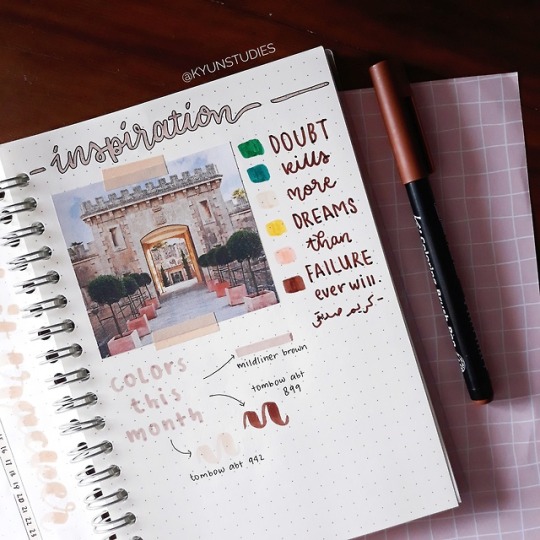 @KYUNSTUDIES
- inspiration -
DOUBT
kills
more
DREAMS
than
FAILURE
ever will.
- كريم
colors
this
month
mildliner brown
tombow abt
899
tombow abt 942
16
17
18
19
20
21
22
23